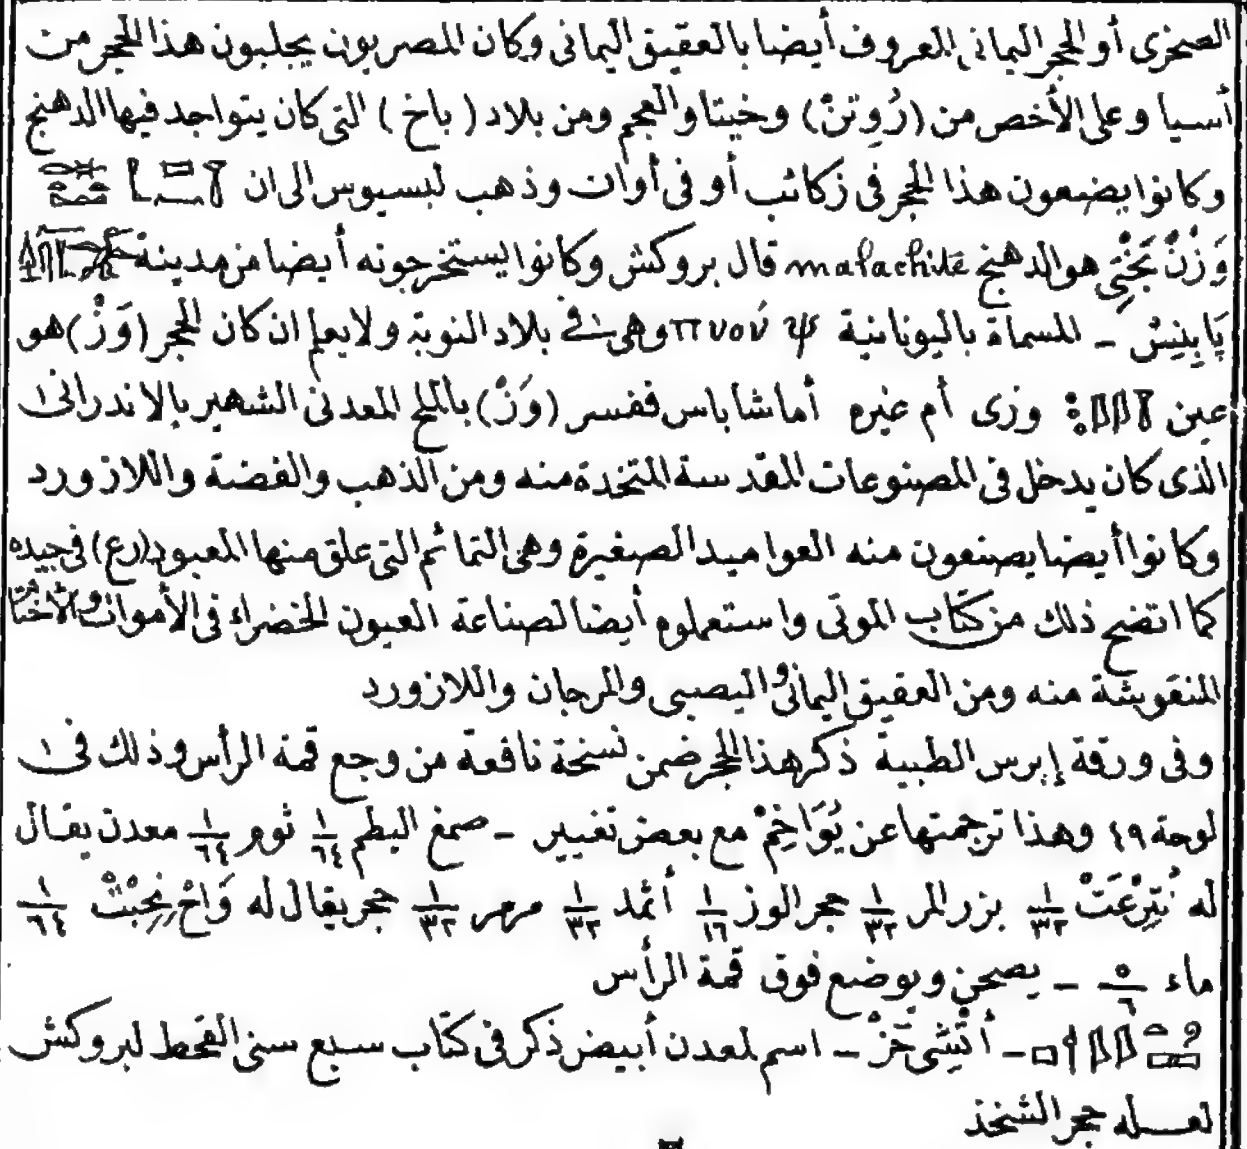 الصخرى أو الحجر اليمانى المعروف أيضا بالعقيق اليمانى وكان المصريون يجلبون هذا الحجر من
أسيا وعلى الأخص من (رُوِتنْ) وخيتا والعجم ومن بلاد (باخ) التى كان يتواجد فيها الدهنج
وكانوا يضعون هذا الحجر فى زكائب أو فى أوان وذهب لبسيوس الى ان
وَزْنْ بَخْتِى هو الدهنج malachite قال بروكش وكانوا يستخرجونه أيضا من مدينة
پَابِنِسْ - المسماة باليونانية πνουψ وهى فى بلاد النوبة ولا يعلم ان كان الحجر (وَزْ) هو
عين وزى أم غيره أما شاباس ففسر (وَزْ) بالملح المعدنى الشهير بالاندرانى
الذى كان يدخل فى المصنوعات المقدسة المتخذة منه ومن الذهب والفضة واللازورد
وكانوا أيضا يصنعون منه العواميد الصغيرة وهى التمائم التى علق منها المعبود (رع) فى جيده
كما اتضح ذلك من كتاب الموتى واستعملوه أيضا لصناعة العيون الخضراء فى الأموات
المنقوشة منه ومن العقيق اليمانى واليصبى والمرجان واللازورد
وفى ورقة إبرس الطبية ذكر هذا الحجر ضمن نسخة نافعة من وجع قمة الرأس وذلك فى
لوحة ٤٩ وهذا ترجمتها عن يُوَاخِمْ مع بعض تغيير - صمغ البطم ١/٦٤ ثوم ١/٦٤ معدن يقال
له نُتِرْعَتْ ١/٣٢ بزر المر ١/٣٢ حجر الوز ١/١٦ أثمد ١/٣٢ مرمر ١/٣٢ حجر يقال له ١/٦٤
ماء ٥/٦ - يصحن ويوضع فوق قمة الرأس
- أَنْشِى خَزْ - اسم لمعدن أبيض ذكر فى كتاب سبع سنى القحط لبروكش
لعله حجر الشخذ